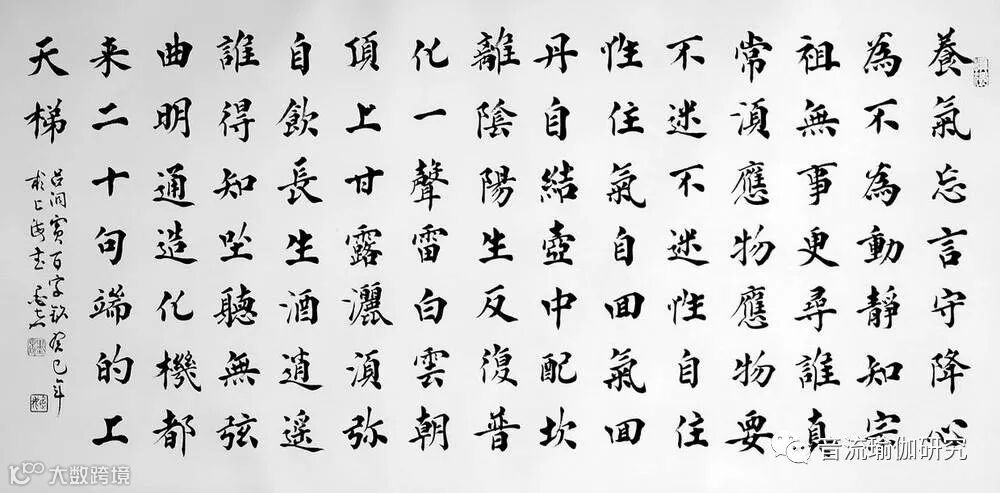 養氣忘言守降心
為不為動靜知宗
祖無事更尋誰真
常須應物應物要
不迷不迷性自住
性住氣自回氣回
丹自結壺中配坎
離陰陽生反復普
化一聲雷白雲朝
頂上甘露灑須弥
自飲長生酒逍遥
誰得知坐聽無弦
曲明通造化機都
来二十句端的上
天梯
吕洞賓百字銘癸巳年
於上海
大数跨境
音流瑜伽研究